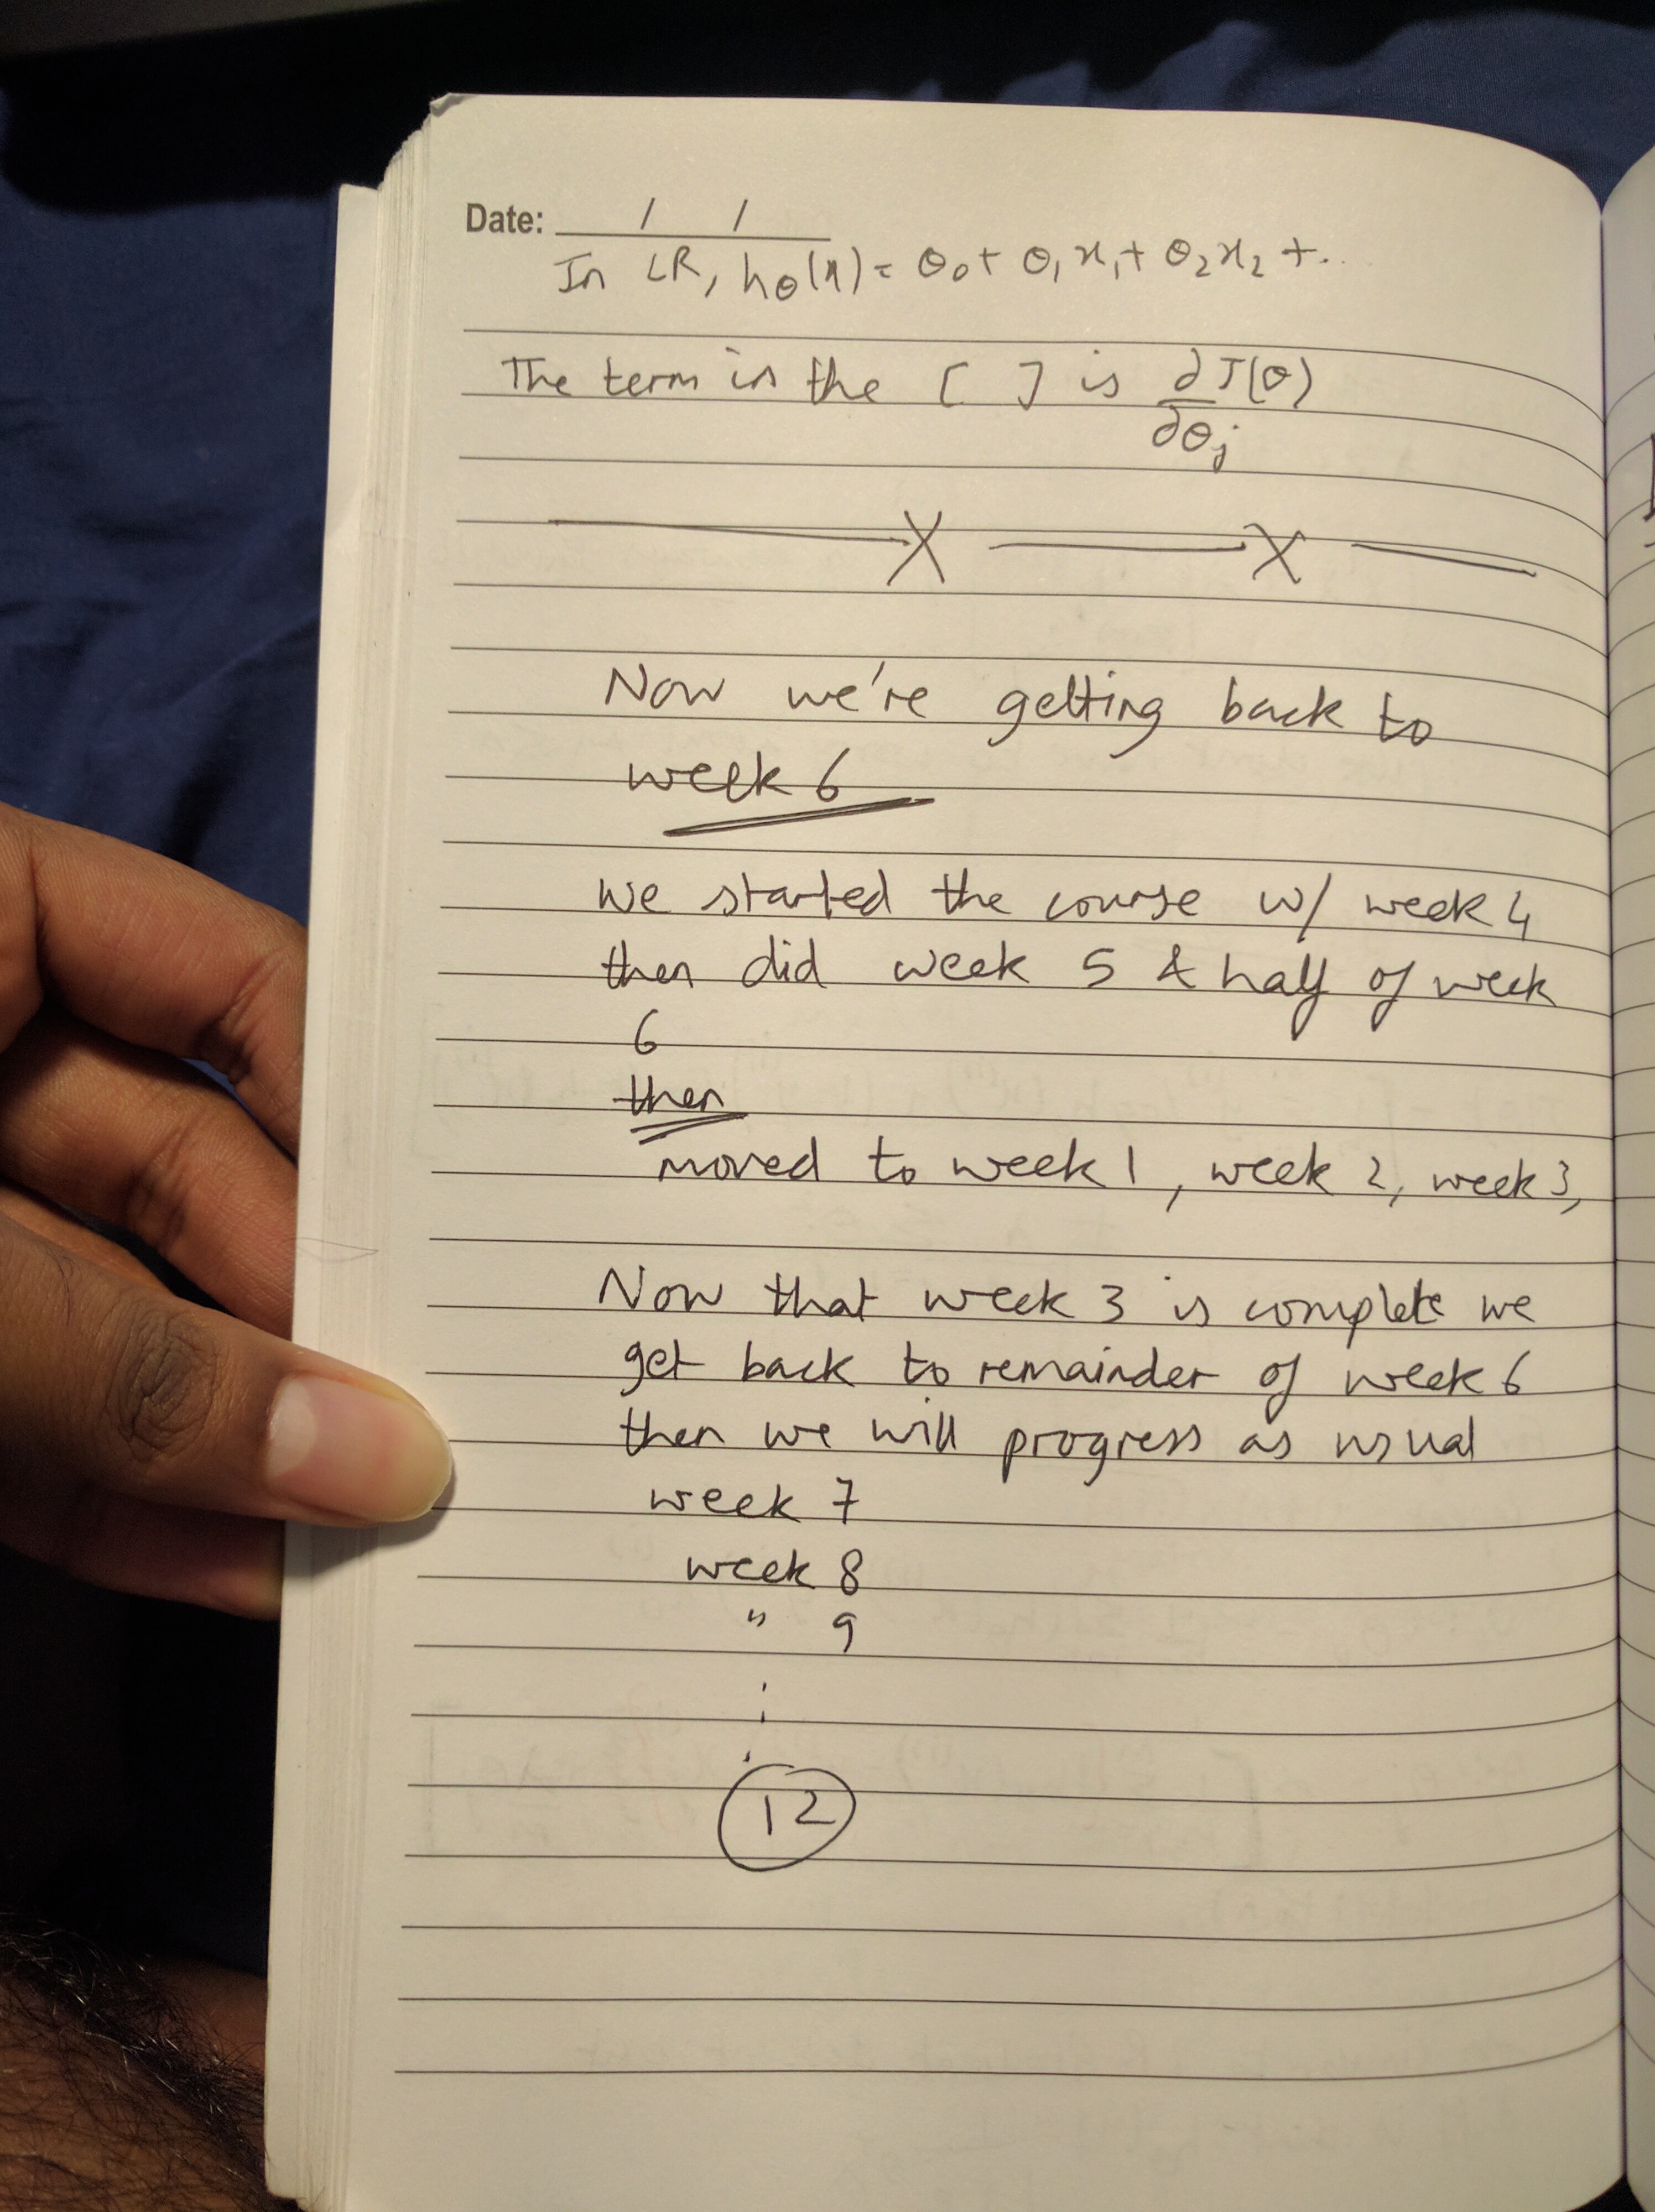 Date: / /
In LR, hθ(x) = θ₀ + θ₁x₁ + θ₂x₂ + ...
The term in the [ ] is ∂J(θ)
∂θj
X X
Now we're getting back to
week 6
We started the course w/ week 4
then did week 5 & half of week
6
then
moved to week 1, week 2, week 3,
Now that week 3 is complete we
get back to remainder of week 6
then we will progress as usual
week 7
week 8
" 9
⋮
12